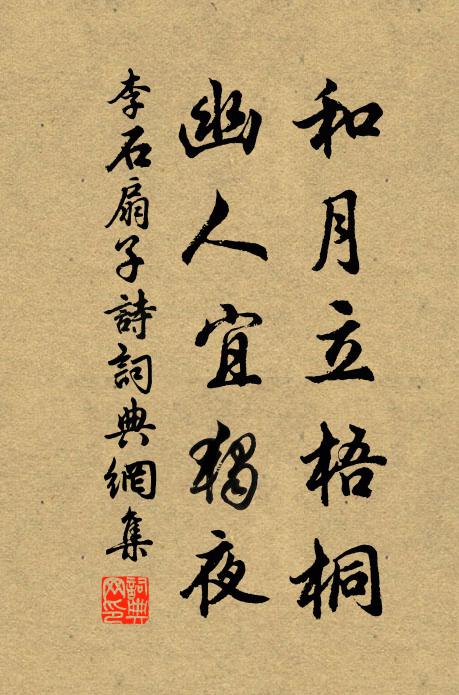 和月立梧桐
幽人宜獨夜
李石扇子詩詞典網集
詞典網印